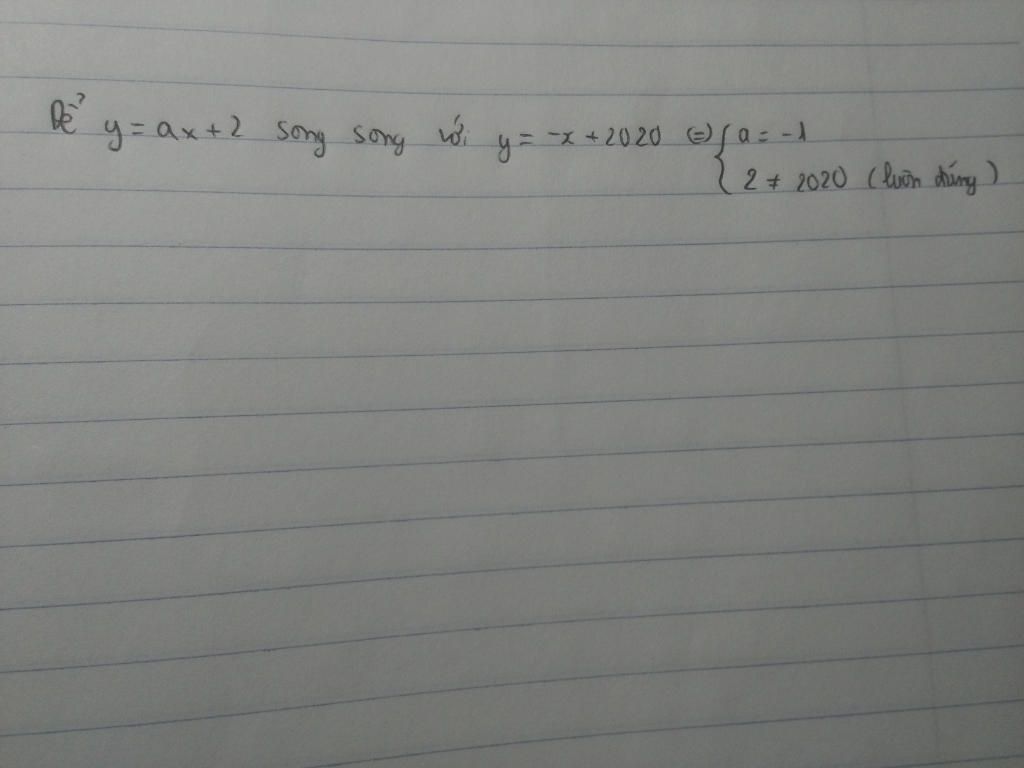 Để y = ax + 2 song song với y = -x + 2020 <=> { a = -1
2 ≠ 2020 (luôn đúng)